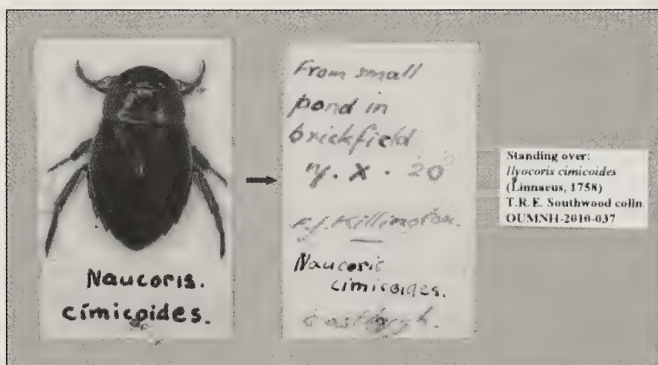 Naucoris.
cimicoides.
From small
pond in
brickfield
X · 20
F.J. Killington.
Naucoris
cimicoides.
Eastleigh.
Standing over:
Ilyocoris cimicoides
(Linnaeus, 1758)
T.R.E. Southwood colln.
OUMNH-2010-037